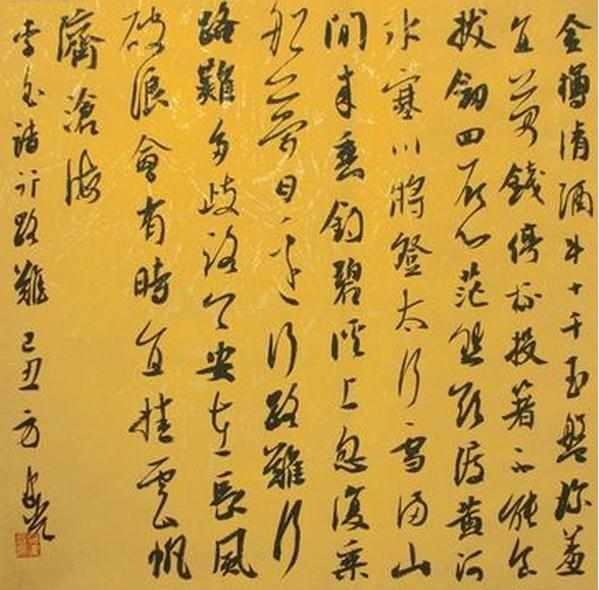 金樽清酒斗十千玉盤珍羞
直萬錢停杯投箸不能食
拔劍四顧心茫然欲渡黄河
冰塞川將登太行雪滿山
閒来垂釣碧溪上忽復乘
舟夢日邊行路難行
路難多歧路今安在長風
破浪會有時直挂雲帆
濟滄海
李白詩行路難己丑方